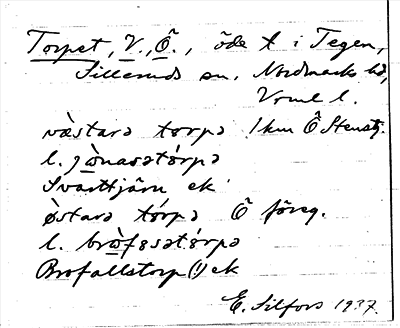 Torpet, V., Ö., öde t i Tegen,
Silleruds sn. Nordmarks hd,
Vrml l.
västarə torpə 1 km Ö Stenstj.
l. jònasətórpə
Svarttjärn ek
östarə tórpə Ö föreg.
l. bròfɷsətórpə
Brofallstorp (!) ek
E. Silfors 1937.